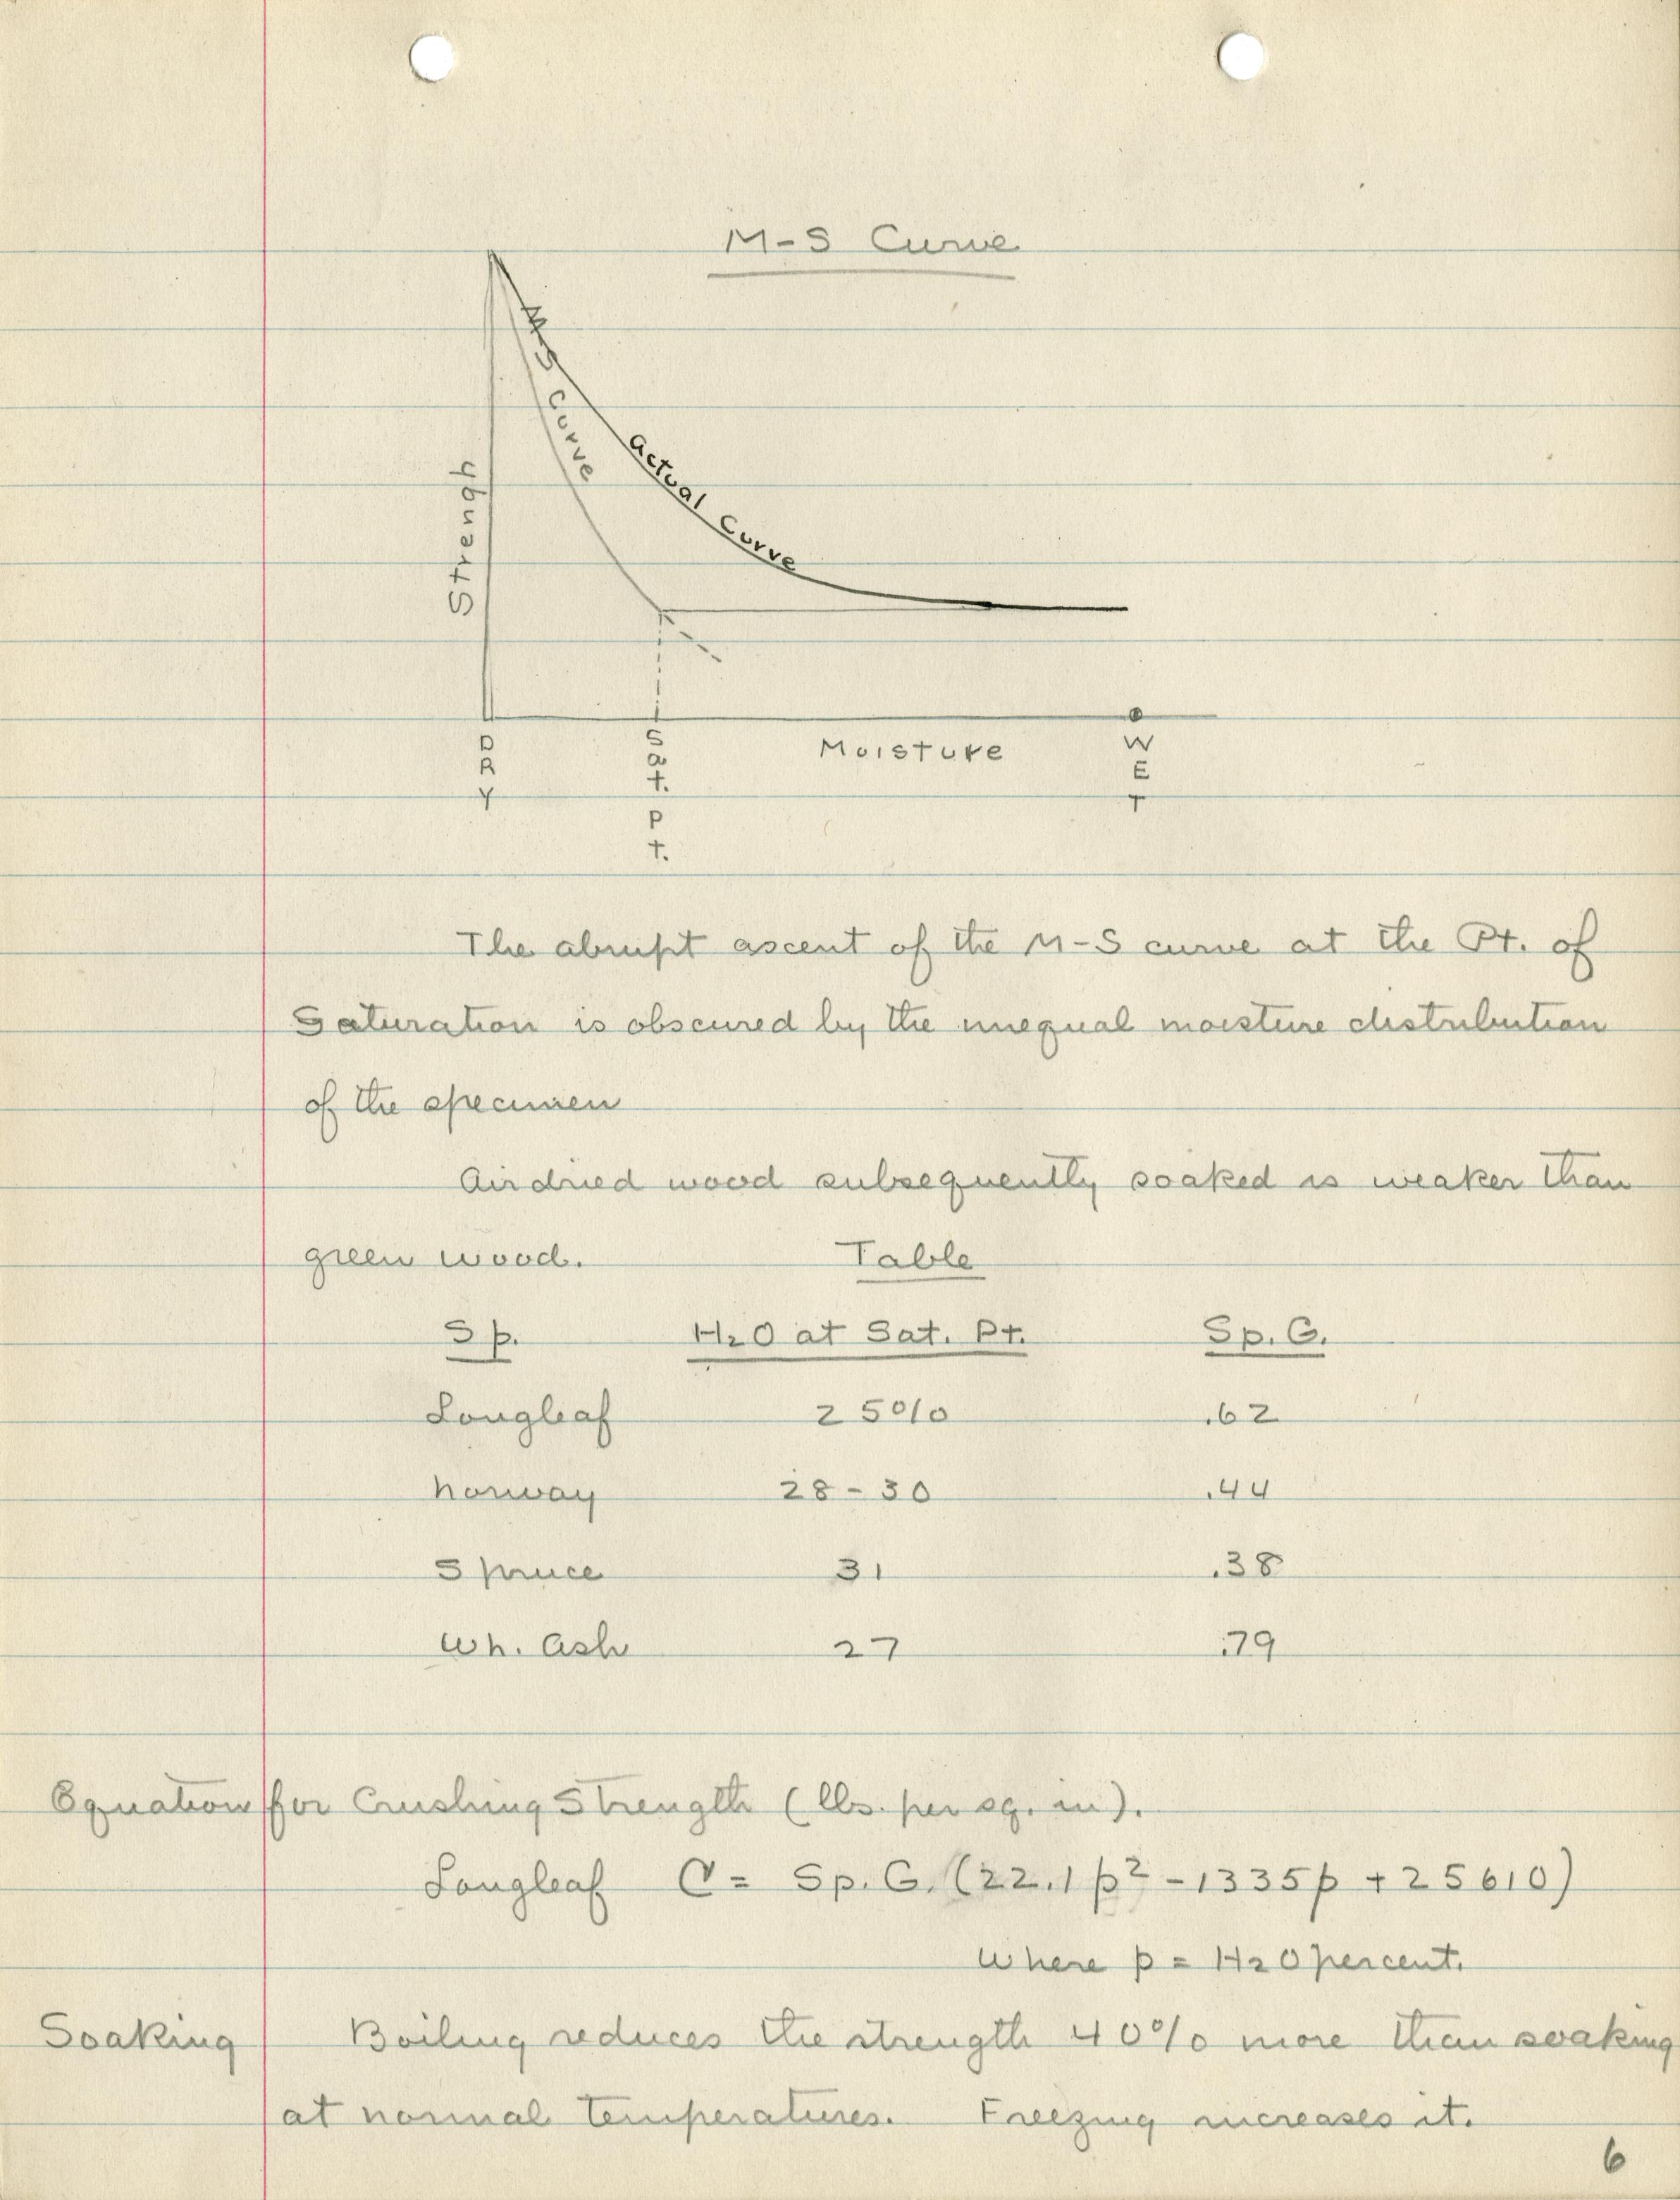 M-S Curve
Curve
Actual Curve
Strengh
DRY
Sat. Pt.
Moisture
WET
The abrupt ascent of the M-S curve at the Pt. of
Saturation is obscured by the unequal moisture distribution
of the specimen
Air dried wood subsequently soaked is weaker than
green wood. Table
Sp. H2O at Sat. Pt. Sp. G.
Longleaf 25% .62
Norway 28-30 .44
Spruce 31 .38
Wh. Ash 27 .79
Equation for Crushing Strength (lbs. per sq. in).
Longleaf C = Sp. G. (22.1p² - 1335p + 25610)
Where p = H2O percent.
Soaking Boiling reduces the strength 40% more than soaking
at normal temperatures. Freezing increases it.
6